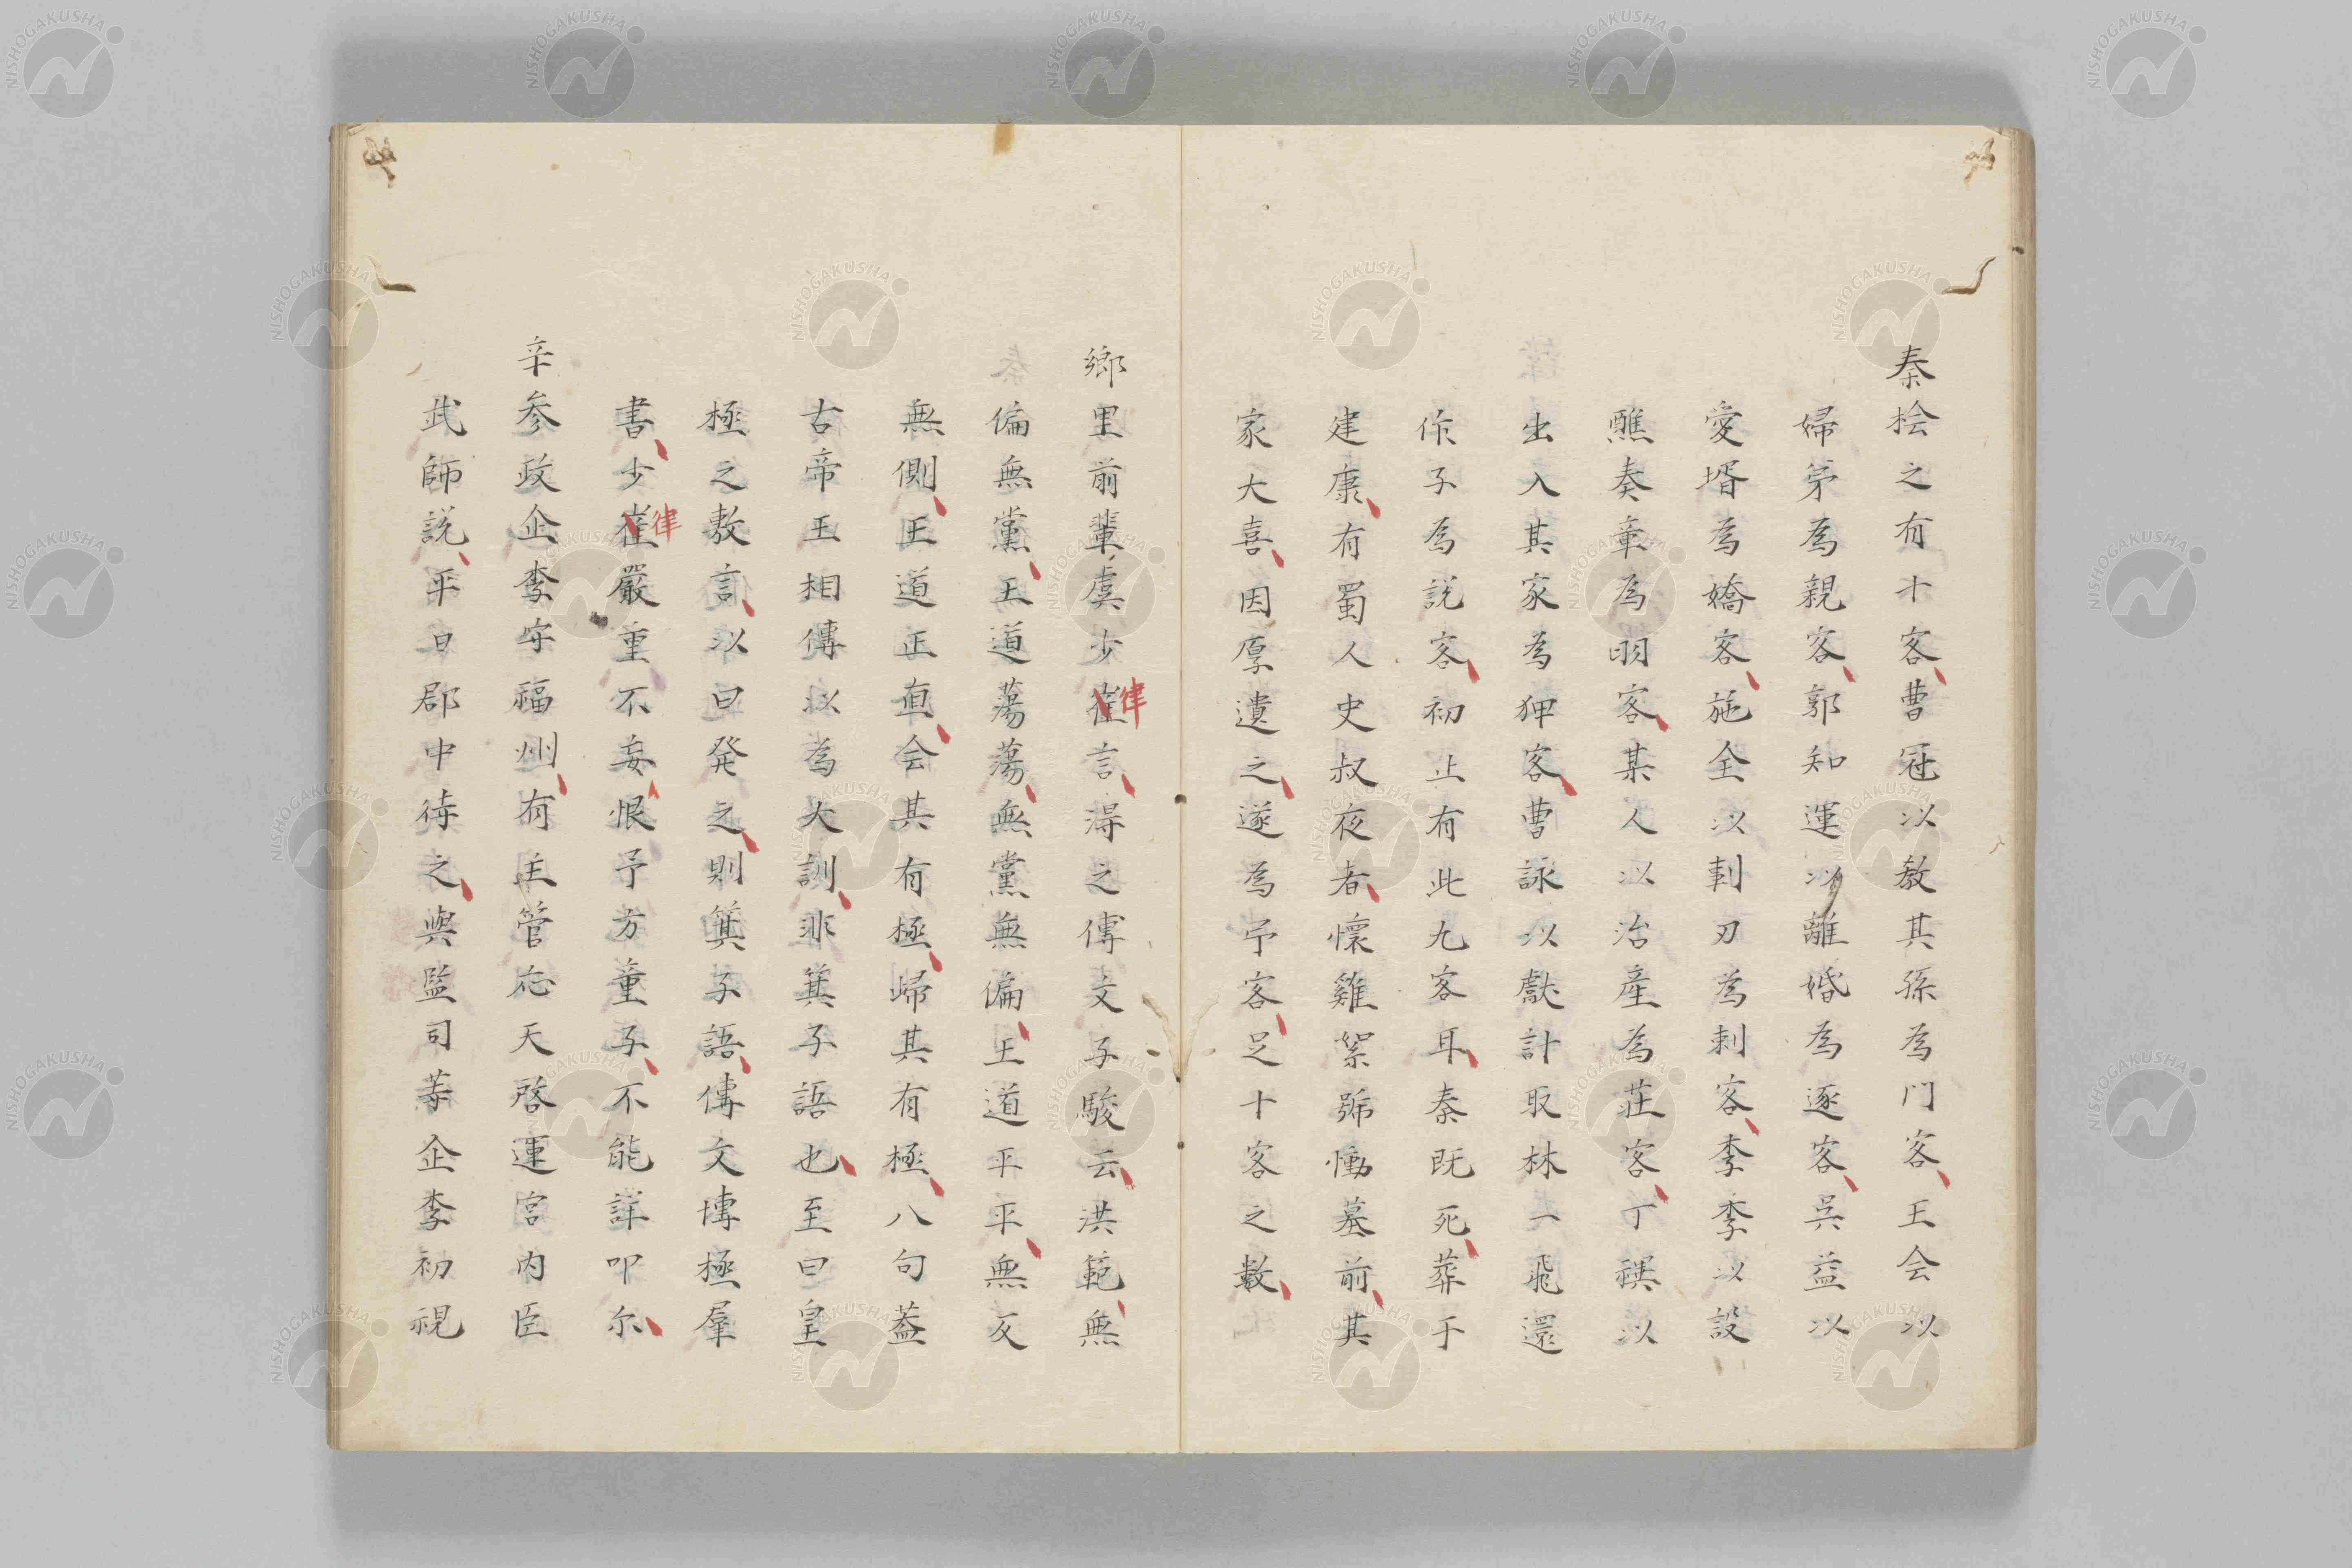 秦桧之有十客曹冠以教其孫為門客王会以
婦弟為親客郭知運以離婚為逐客吳益以
愛壻為嬌客施全以剚刃為刺客李季以設
醮奏章為羽客某人以治產為莊客丁禩以
出入其家為狎客曹詠以獻計取林一飛還
作子為說客初止有此九客耳秦既死葬于
建康有蜀人史叔夜者懷雞絮號慟墓前其
家大喜因厚遺之遂為弔客足十客之數
鄉里前輩虞少崔言淂之傅丈子駿云洪範無
律
偏無黨王道蕩蕩無黨無偏王道平平無反
無側王道正直会其有極歸其有極八句蓋
古帝王相傳以為大訓非箕子語也至曰皇
極之敷言以曰発之則箕子語傅文博極羣
書少崔嚴重不妄恨予方童子不能詳叩尔
律
辛参政企李守福州有主管応天啓運宮內臣
武師說平日郡中待之與監司等企李初視
NISHOGAKUSHA